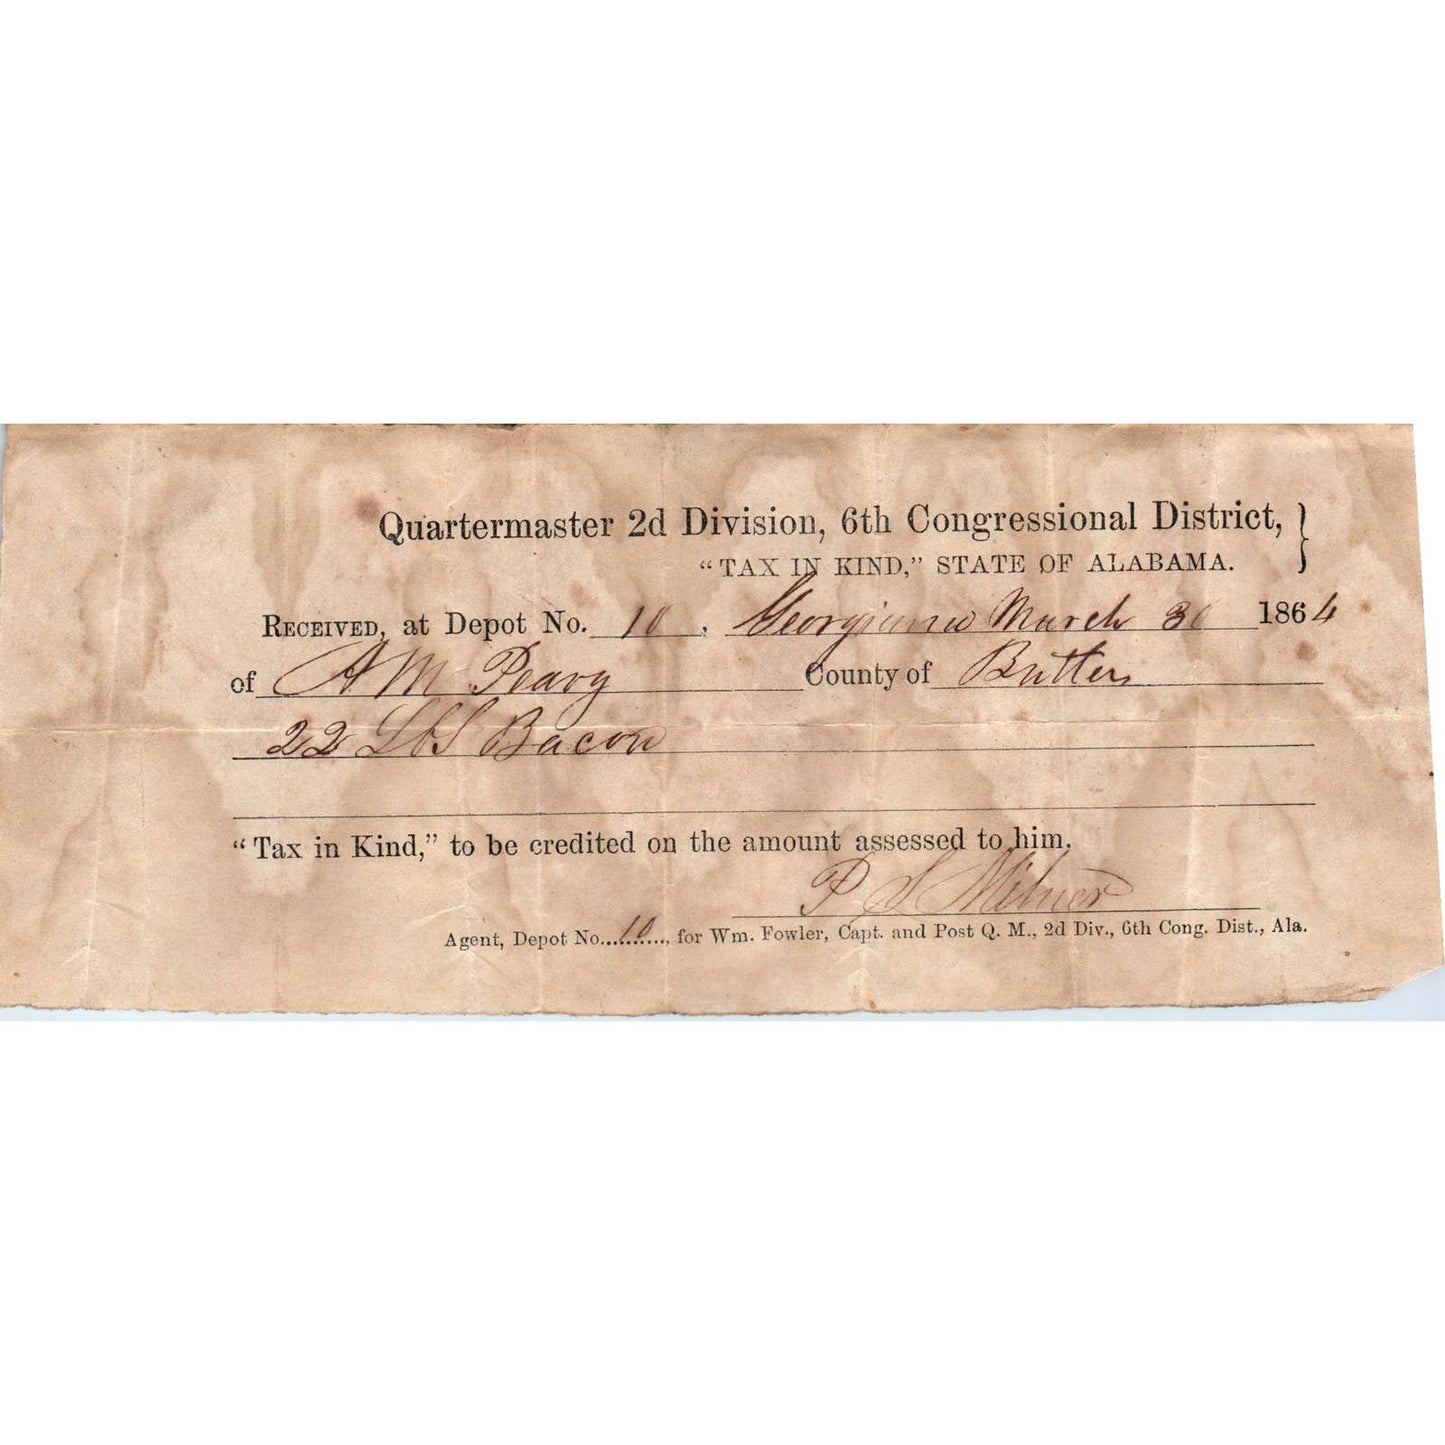 Quartermaster 2d Division, 6th Congressional District, }
"TAX IN KIND," STATE OF ALABAMA.
RECEIVED, at Depot No. 10, Georgiana March 30 1864
of A M Peavy County of Butler
22 Lbs Bacon
"Tax in Kind," to be credited on the amount assessed to him.
P S Milner
Agent, Depot No. 10, for Wm. Fowler, Capt. and Post Q. M., 2d Div., 6th Cong. Dist., Ala.